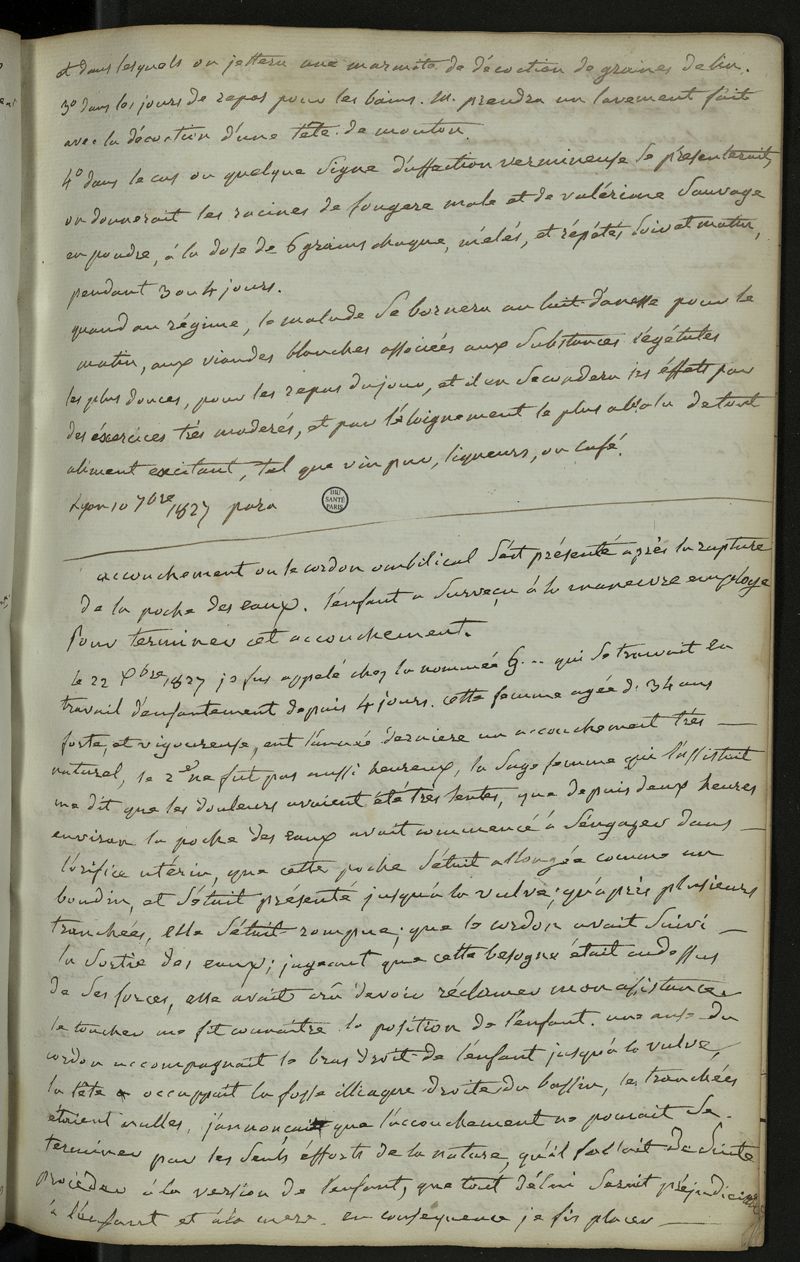 et dans lesquels on jettera une marmite de décoction de graines de lin.
3° dans les jours de repos pour les bains. M. prendra un lavement fait
avec la décoction d'une tête de mouton.
4° dans le cas ou quelque signe d'affection vermineuse se présenterait,
on donnerait les racines de fougere male et de valériane sauvage
en poudre, à la dose de 6 grains chaque, mêlés, et répétés soir et matin,
pendant 3 ou 4 jours.
quand au régime, le malade se bornera au lait d'anesse pour le
matin, aux viandes blanches associées aux substances végétales
les plus douces, pour les repas du jour, et il en secondera les éffets par
des éxercices très moderés, et par l'éloignement le plus absolu de tout
aliment excitant, tel que vin pur, liqueurs, ou café.
Lyon 10 7bre 1827
BIU SANTÉ PARIS
accouchement ou le cordon ombilical s'est présenté après la rupture
de la poche des eaux. l'enfant a survecu à la maneuvre employé
pour terminer cet accouchement.
le 22 Xbre 1827 je fus appelé chez la nommée G... qui se trouvait en
travail d'enfantement depuis 4 jours. cette femme agée de 34 ans
forte, et vigoureuse, eut l'année derniere un accouchement très
naturel, le 2e ne fut pas aussi heureux, la sage femme qui l'assistait
me dit que les douleurs avaient été très lentes, que depuis deux heures
environ la poche des eaux avait commencé à s'engager dans
l'orifice utérin, que cette poche s'était allongée comme un
boudin, et s'était présenté jusqu'à la vulve; qu'après plusieurs
tranchées, elle s'était rompue; que le cordon avait suivi
la sortie des eaux; jugeant que cette besogne était audessus
de ses forces, elle avait crû devoir réclamer mon assistance.
le toucher me fit connaître la position de l'enfant. une anse du
cordon accompagnait le bras droit de l'enfant jusqu'à la vulve,
la tête occuppait la fosse illiaque droite du bassin, les tranchées
étoient nulles, j'annonçait que l'accouchement ne pouvait se
terminer par les seuls éfforts de la nature, qu'il fallait de suite
procéder à la version de l'enfant, que tout délai serait préjudiciable
à l'enfant et à la mere. en conséquence je fis placer